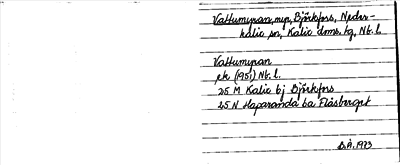 Vattumyran, myr, Björkfors, Neder-
kalix sn, Kalix dms. tg, Nb. l.
Vattumyran
ek (1951) Nb. l.
25 M Kalix bj Björkfors
25 N Haparanda ba Flåsberget
B.Å. 1973